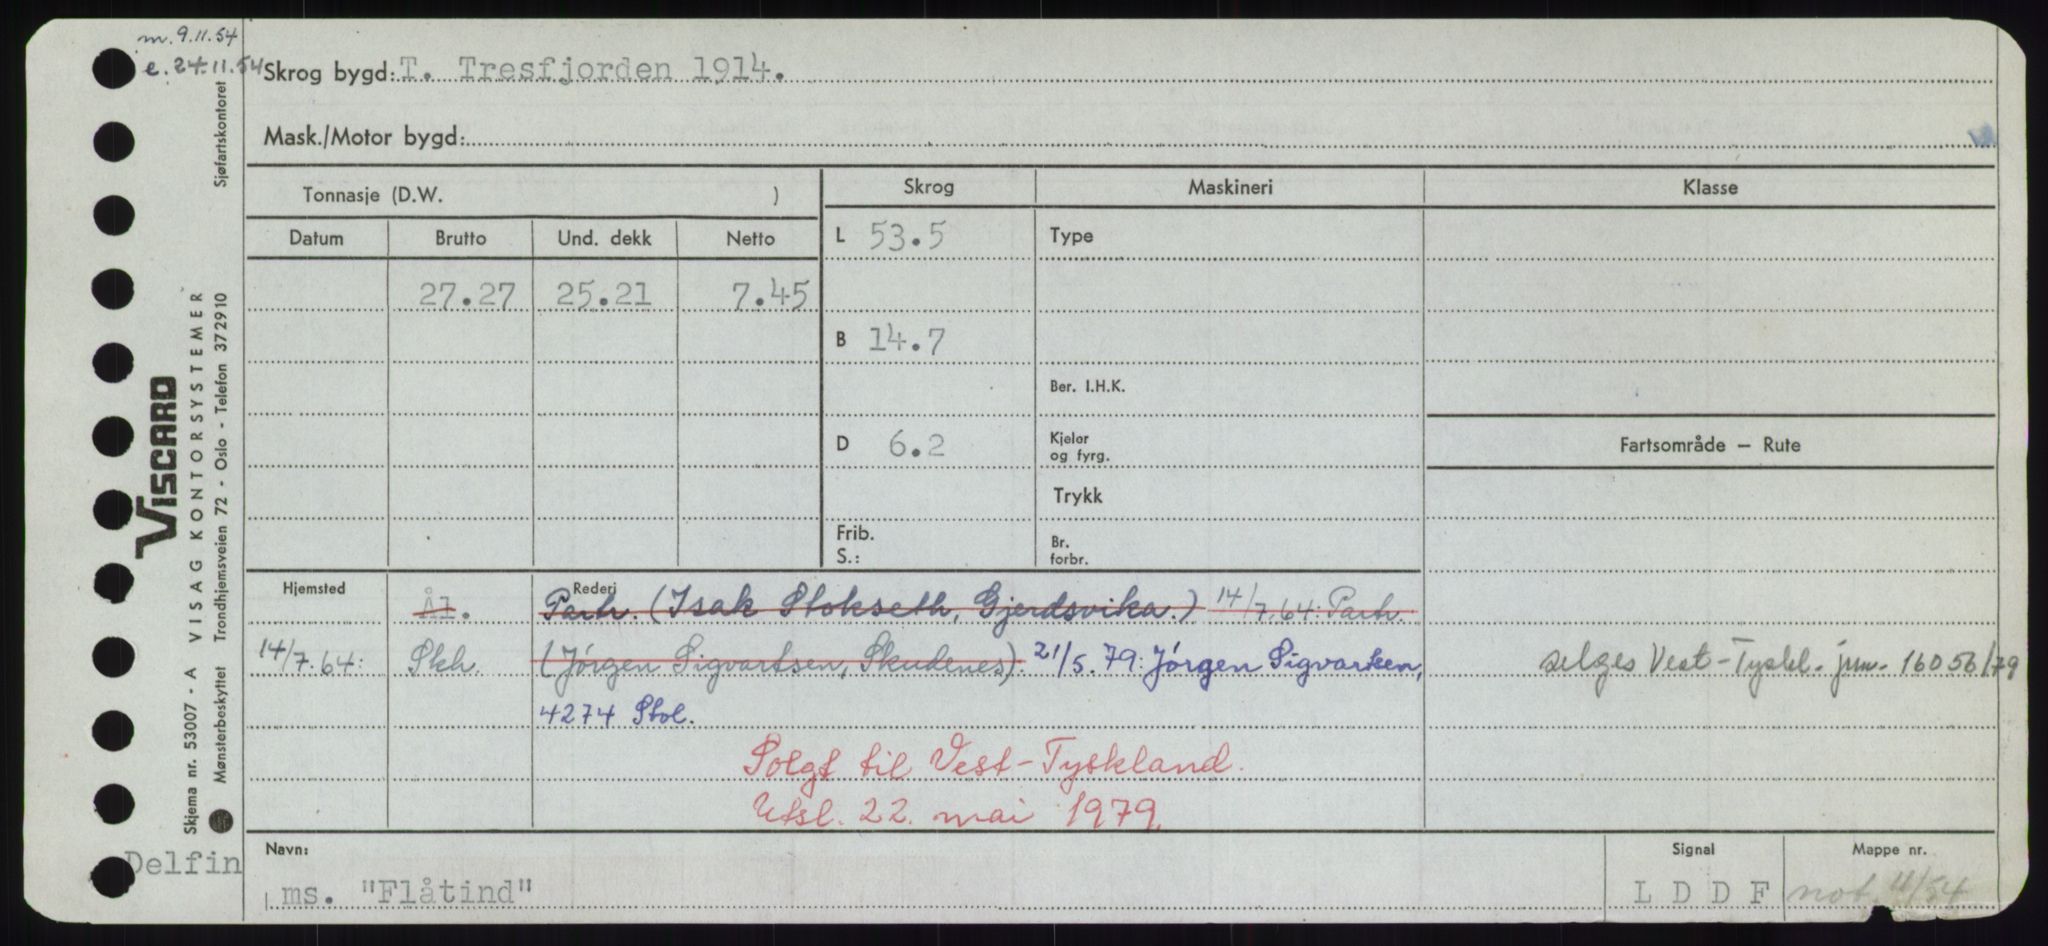 m. 9.11.54
e. 24.11.54
Skrog bygd: T. Tresfjorden 1914.
Mask./Motor bygd:
Tonnasje (D.W. )
Skrog
Maskineri
Klasse
Datum Brutto Und. dekk Netto
L 53.5
Type
27.27 25.21 7.45
B 14.7
Ber. I.H.K.
D 6.2
Kjeler
og fyrg.
Fartsområde — Rute
Trykk
Frib.
S.:
Br.
forbr.
Hjemsted
Rederi
Ål. Partr. (Isak Stokseth, Gjerdsvika.) 14/7.64: Partr.
14/7.64: Skh. (Jórgen Sigvartsen, Skudenes). 21/5.79: Jórgen Sigvartsen,
selges Vest-Tyskl. jrnr. 16056/79
4274 Stol.
Solgt til Vest-Tyskland.
Utsl. 22. mai 1979.
Navn:
Signal
Mappe nr.
Delfin
ms. "Flåtind"
L D D F
not. 11/54
Sjøfartskontoret
VISCARD
VISAG KONTORSYSTEMER
Skjema nr. 53007 - A
Mønsterbeskyttet Trondhjemsveien 72 - Oslo - Telefon 372910